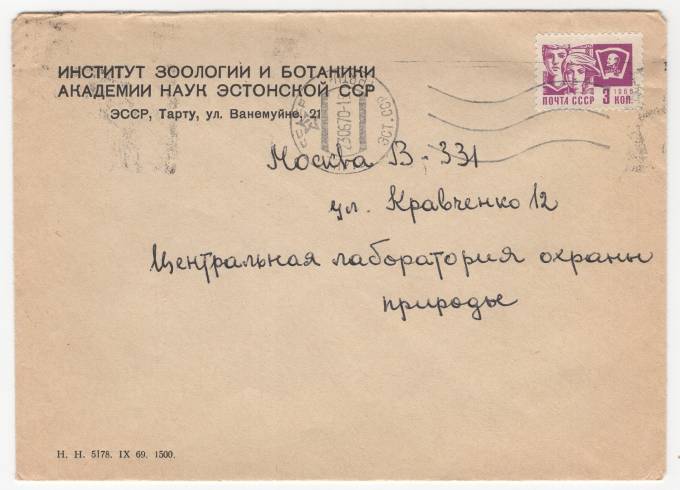 ИНСТИТУТ ЗООЛОГИИ И БОТАНИКИ
АКАДЕМИИ НАУК ЭСТОНСКОЙ ССР
ЭССР, Тарту, ул. Ванемуйне, 21
ПОЧТА СССР
1966
3 КОП.
СССР
230670-1
ЭСТ. ССР
Москва В-331
ул. Кравченко 12
Центральная лаборатория охраны
природы
Н. Н. 5178. IX 69. 1500.